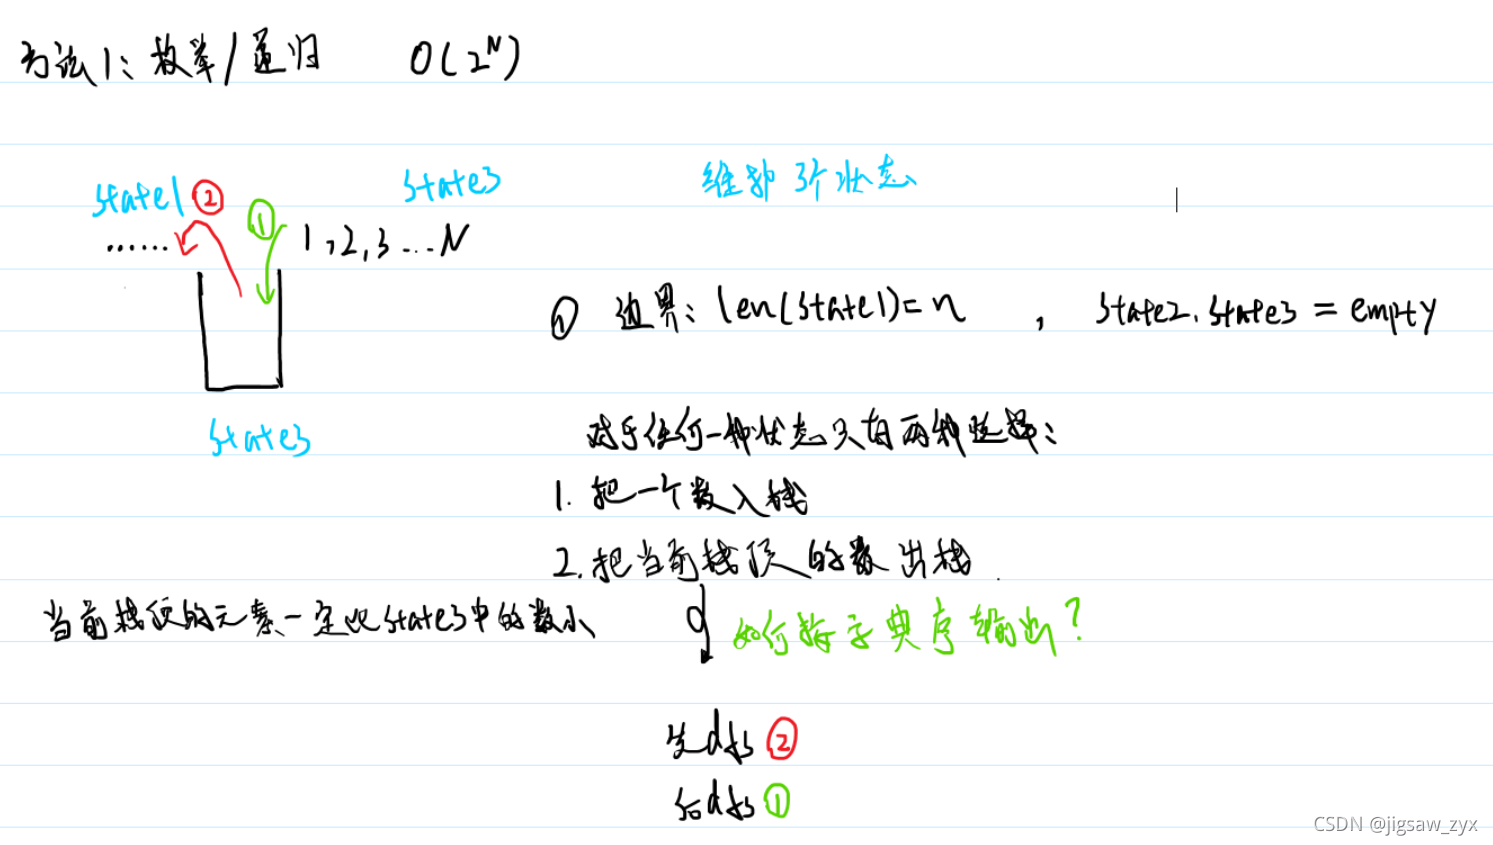 方法1：枚举/递归 O(2^N)
state1 ② state3 维护 3个状态
① 1,2,3...N
......
① 边界：len(state1)=n , state2.state3 = empty
对于任何一种状态只有两种选择：
state3
1. 把一个数入栈
2. 把当前栈顶的数出栈.
当前栈顶的元素一定比state3中的数小
如何按字典序输出？
先dfs ②
后dfs ①
CSDN @jigsaw_zyx